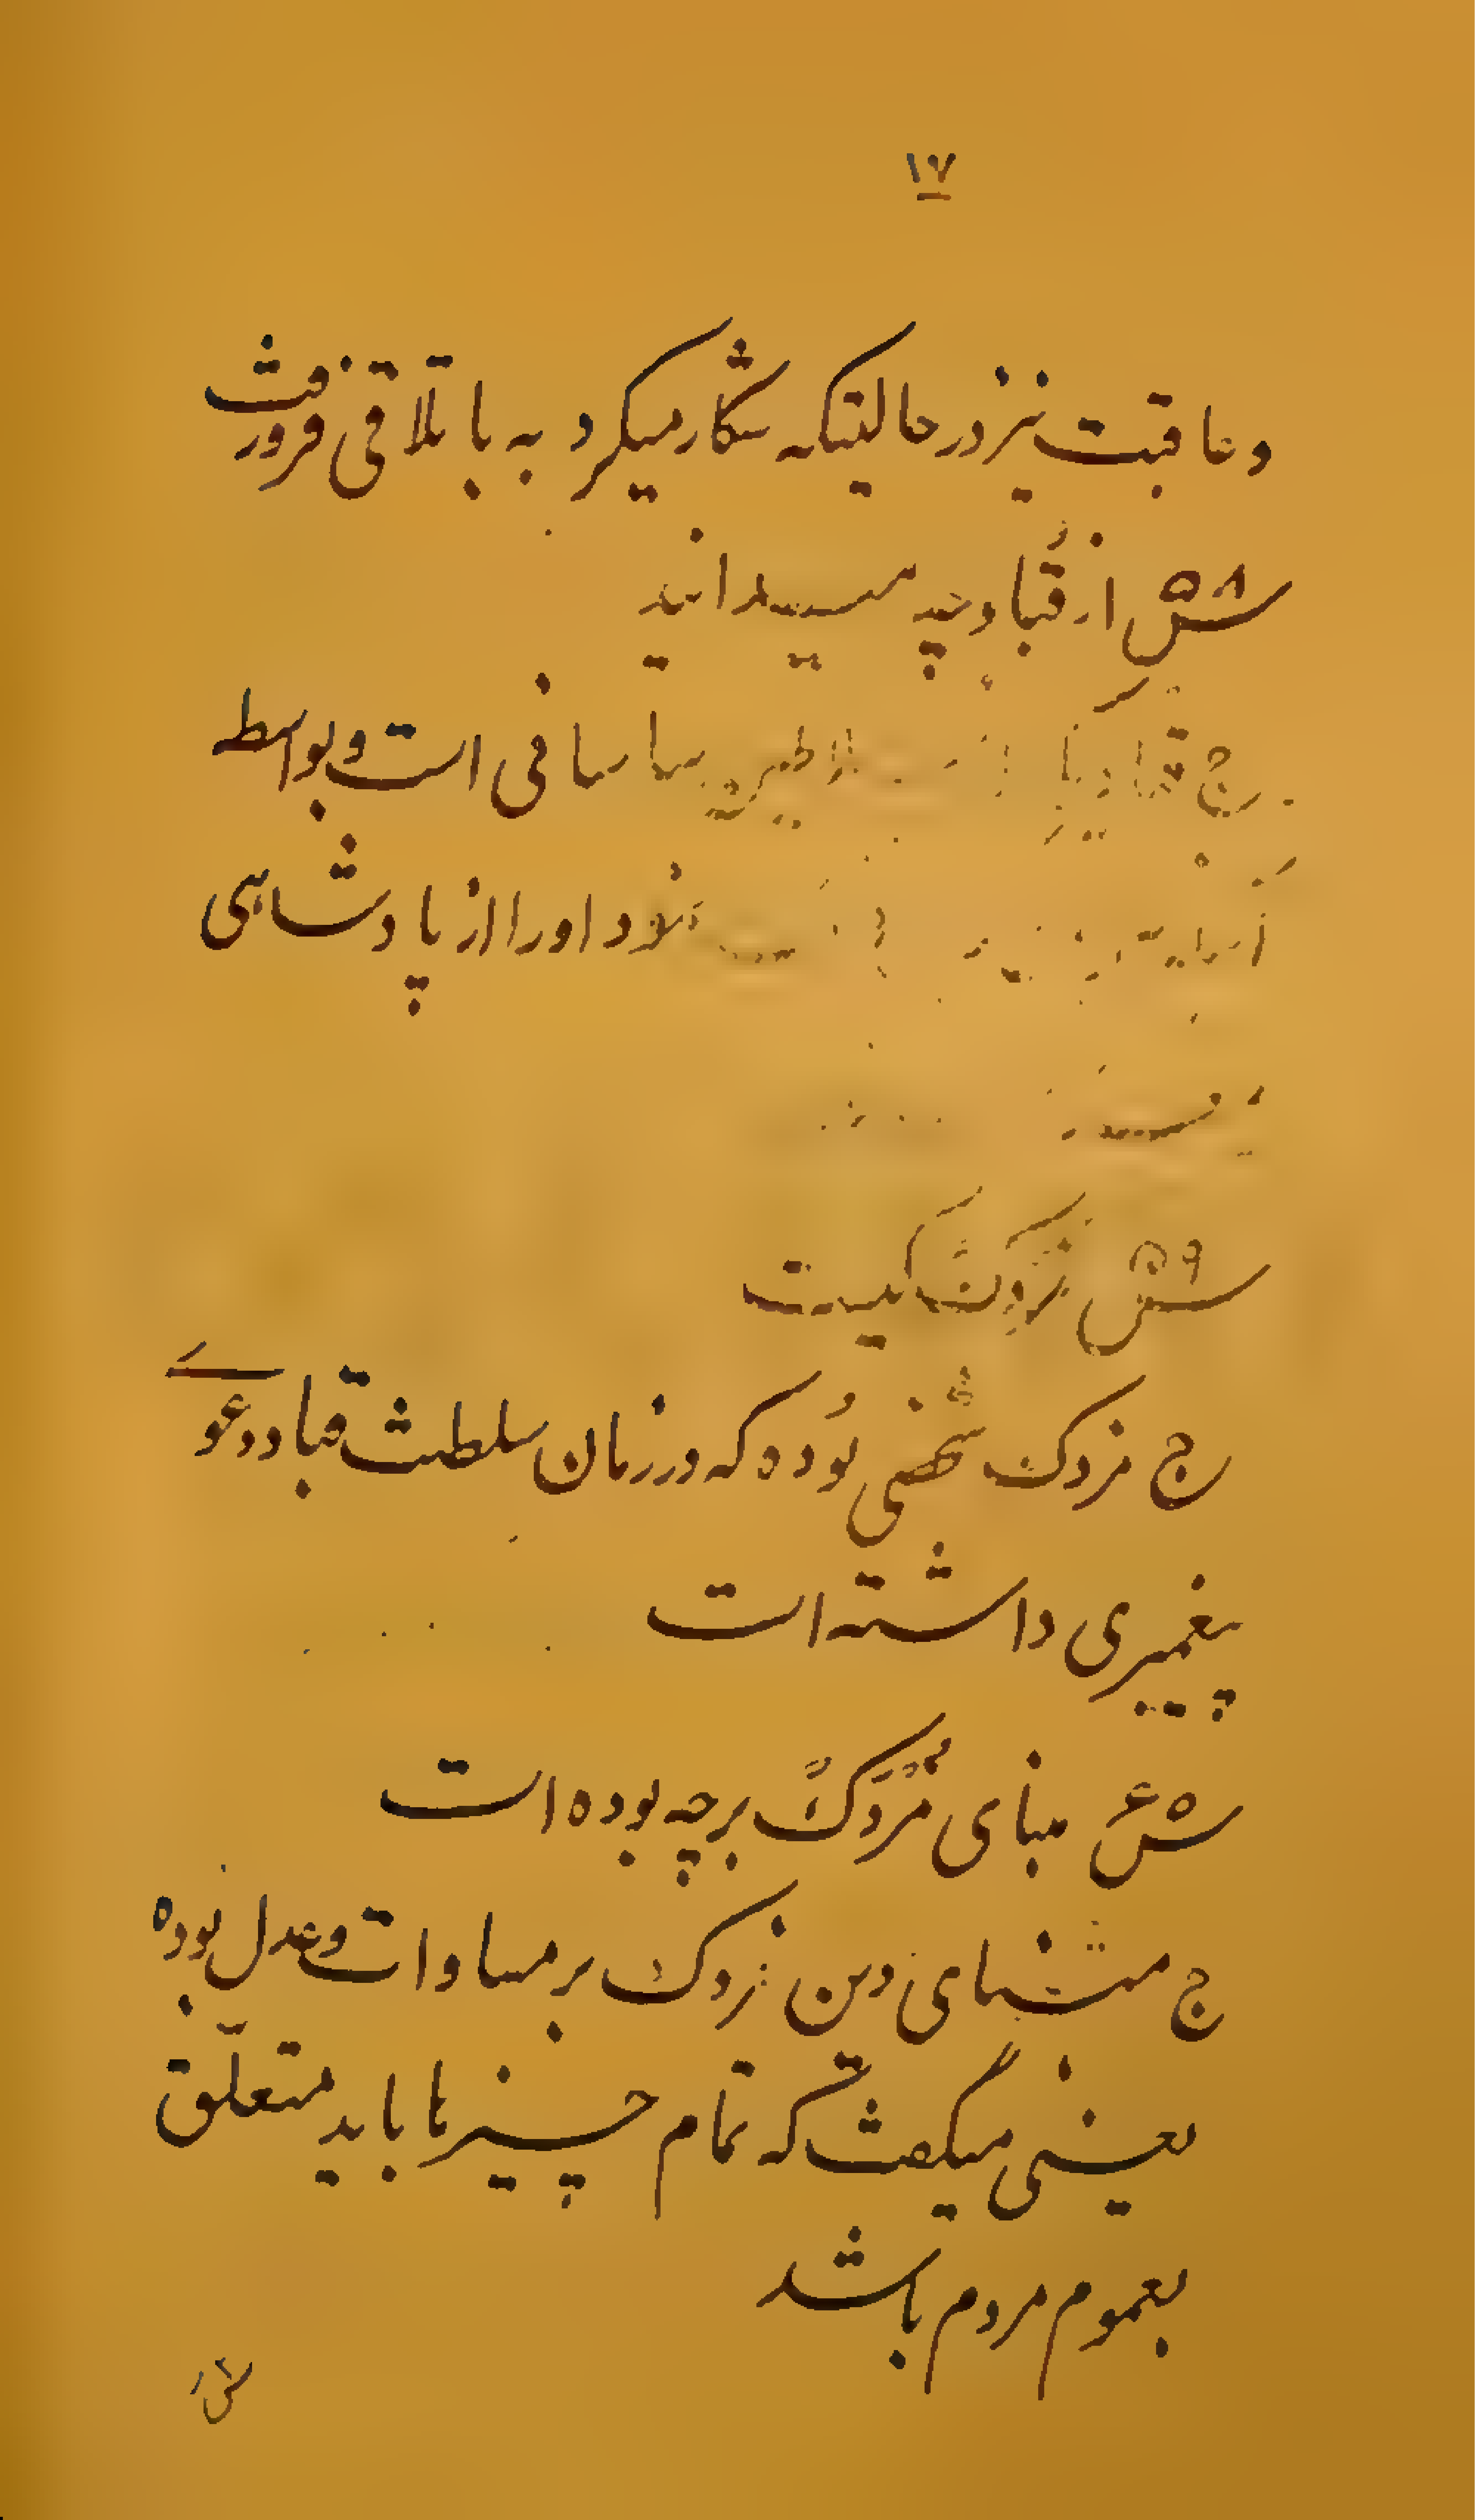 ۱۷
وعاقبت نیز در حالتیکه شکار میکرد به باتلاقی فرو رفت
ش۵۸ از قُباد چه میدانید
ج قباد یکی از سلاطین ساسانی است و بواسطه
نمود او را از پادشاهی
ش۵۹ مَزدَک کیست
ج مزدک شخصی بوده که در زمان سلطنت قباد دعوی
پیغمبری داشته است
ش۶۰ مبنای مَزدَک بر چه بوده است
ج مبنای دین مزدک بر مساوات و عدل بوده
یعنی میگفت که تمام چیزها باید متعلّق
بعموم مردم باشد